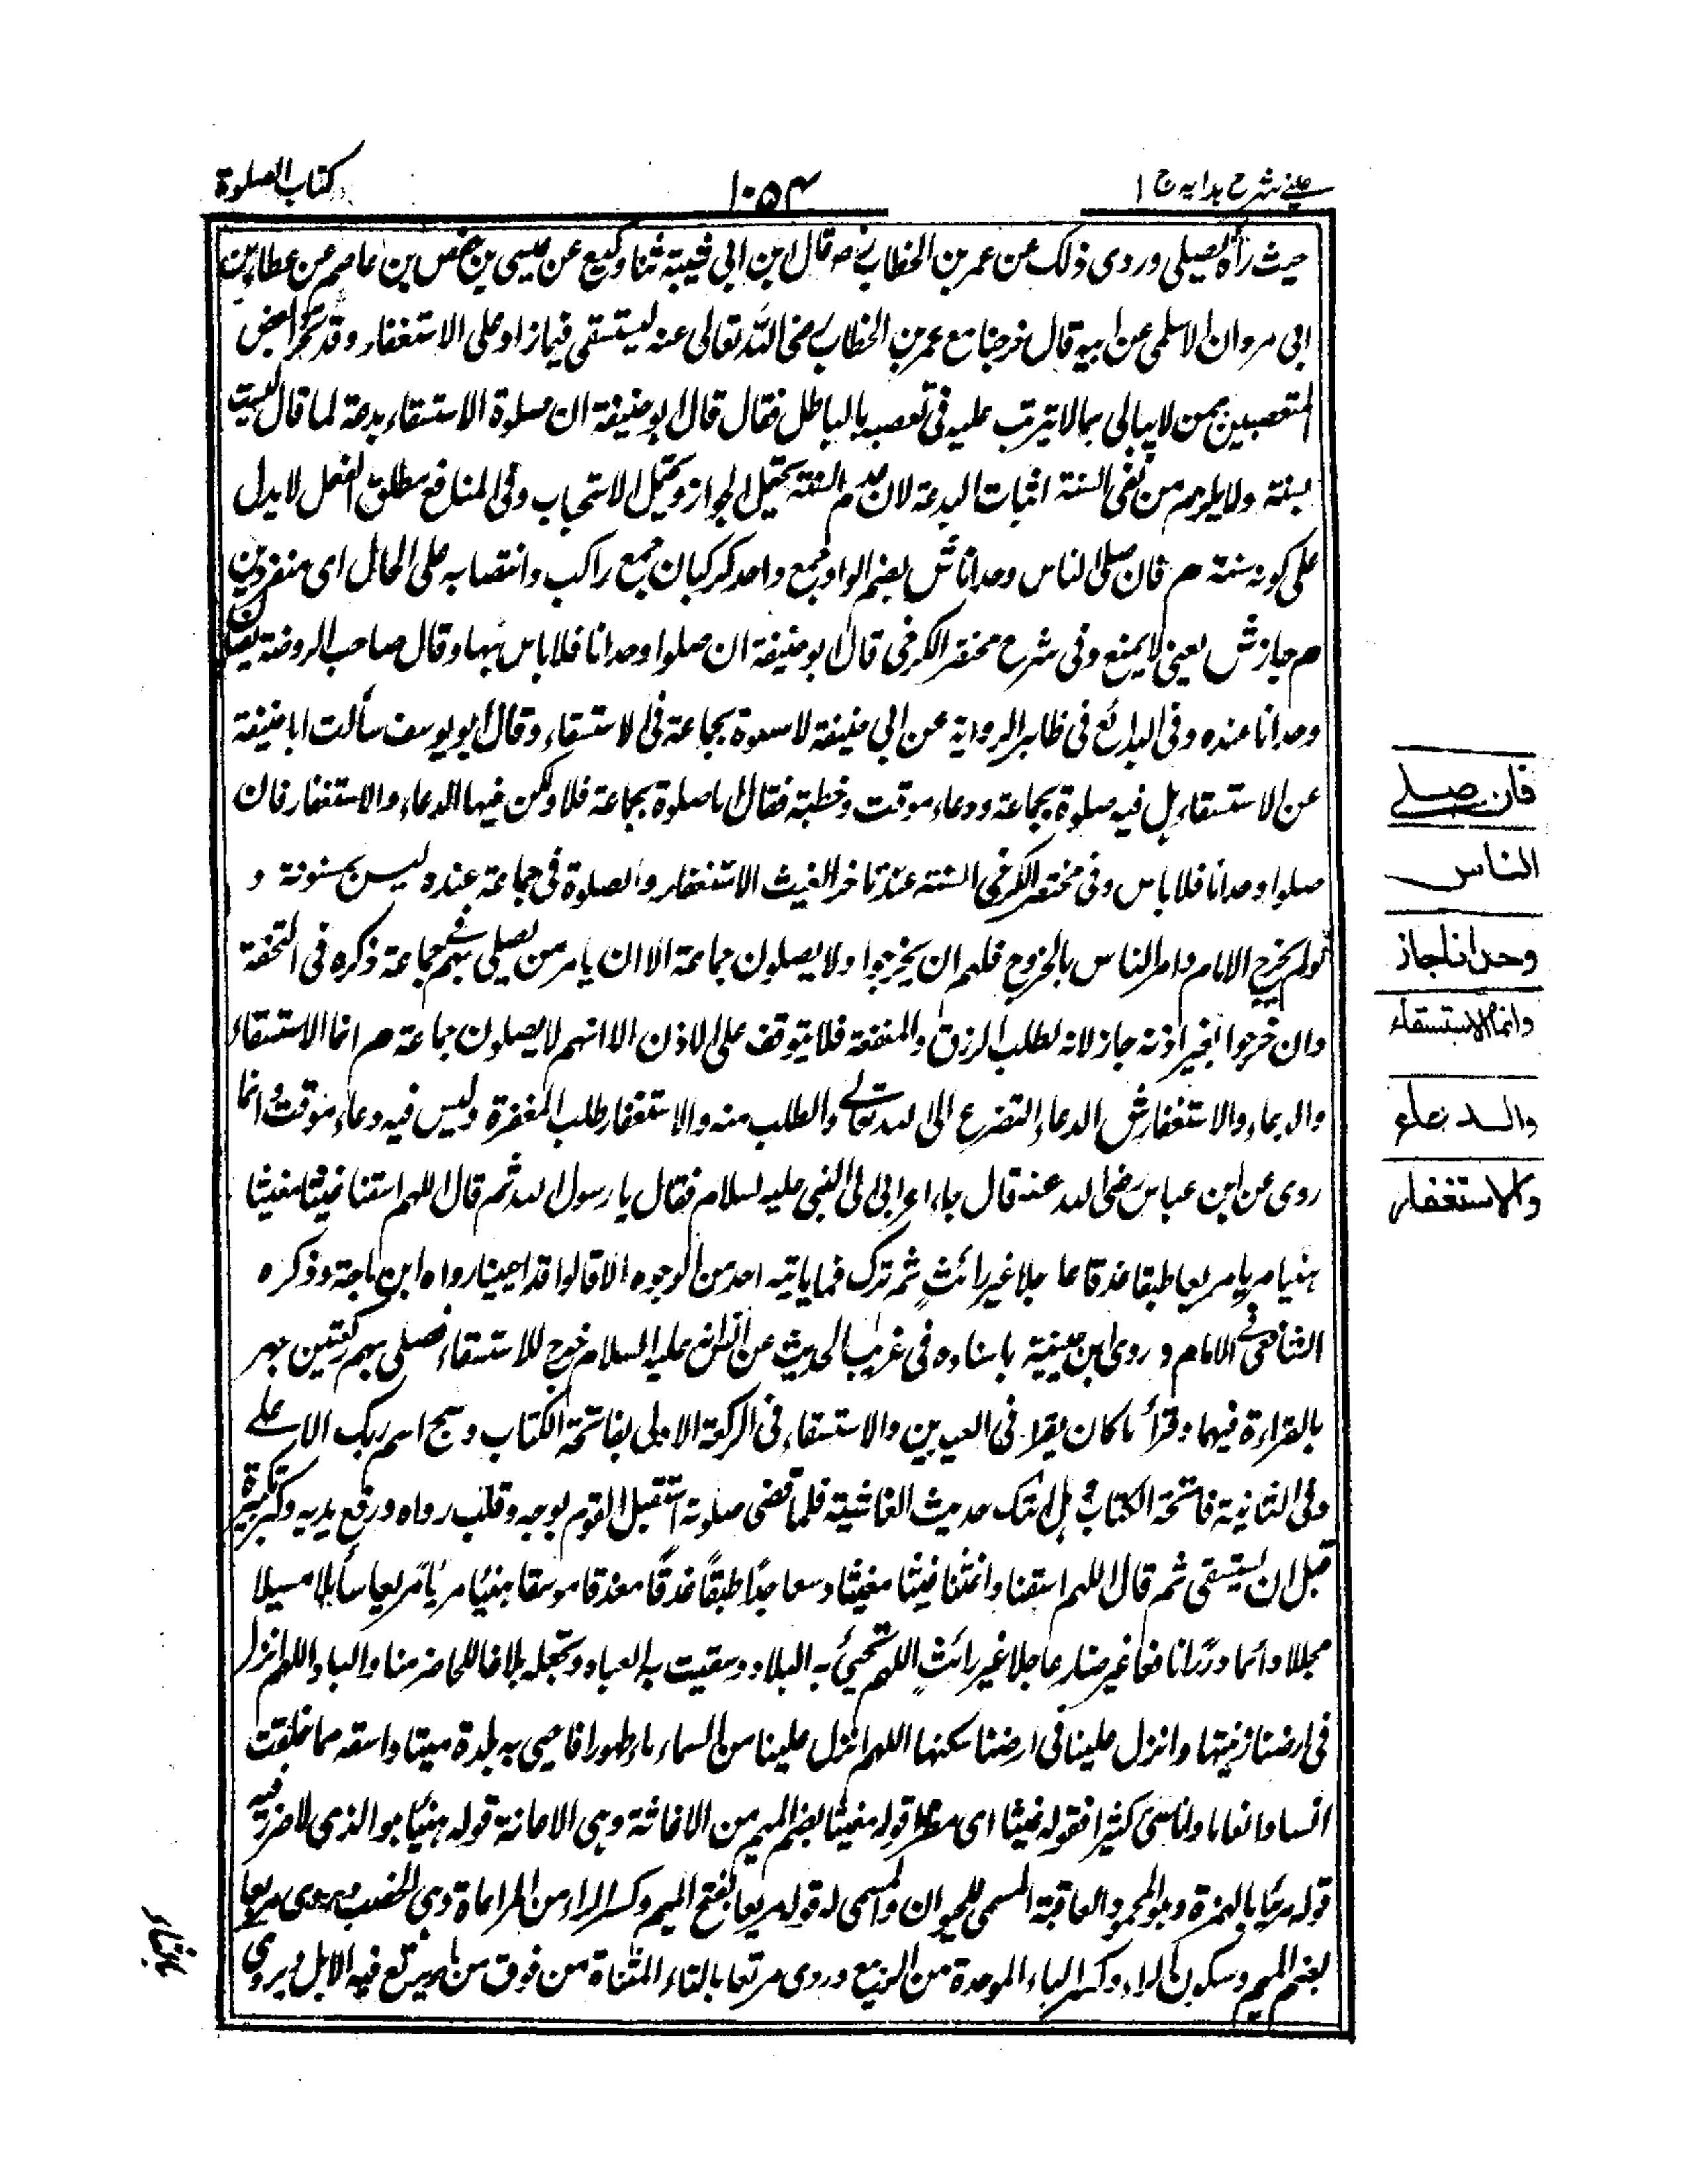 عینی شرح ہدایہ ج ۱
۱۰۵۴
کتاب الصلوة
حیث رآہ یصلی وروی ذلک عن عمر بن الخطاب رضہ قال ابن ابی شیبة ثنا وکیع عن عیسی بن حفص بن عاصم عن عطاء بن
ابی مروان الاسلمی عن ابیہ قال خرجنا مع عمر بن الخطاب رضی اللہ تعالی عنہ لیستسقی فما زاد علی الاستغفار وقد تجرأ بعض
المتعصبین ممن لا یبالی بما لا یترتب علیہ فی تعصبہ بالباطل فقال قال ابو حنیفة ان صلوة الاستسقاء بدعة لما قال لیست
بسنة ولا یلزم من نفی السنة اثبات البدعة لان عدم السنة یحتمل الجواز ویحتمل الاستحباب وفی المنافع مطلق الفعل لا یدل
علی کونہ سنة م فان صلی الناس وحدانا ش بضم الواو جمع واحد کرکبان جمع راکب وانتصابہ علی الحال ای منفردین
م جاز ش یعنی لا یمنع وفی شرح مختصر الکرخی قال ابو حنیفة ان صلوا وحدانا فلا باس بہا وقال صاحب الروضة یصلون
وحدانا عندہ وفی البدائع فی ظاہر الروایة عن ابی حنیفة لا صلوة بجماعة فی الاستسقاء وقال ابو یوسف سألت ابا حنیفة
عن الاستسقاء ہل فیہ صلوة بجماعة ودعاء موقت وخطبة فقال اما صلوة بجماعة فلا ولکن فیہا الدعاء والاستغفار فان
صلوا وحدانا فلا باس وفی مختصر الکرخی السنة عند تاخر الغیث الاستغفار والصلوة فی جماعة عندہ لیس بسنونة و
لو لم یخرج الامام وامر الناس بالخروج فلہم ان یخرجوا ولا یصلون جماعة الا ان یامر من یصلی بہم جماعة ذکرہ فی التحفة
وان خرجوا بغیر اذنہ جاز لانہ لطلب الرزق والمنفعة فلا یتوقف علی الاذن الا انہم لا یصلون جماعة م انما الاستسقاء
والدعاء والاستغفار ش الدعاء التضرع الی اللہ تعالے والطلب منہ والاستغفار طلب المغفرة ولیس فیہ دعاء موقت وانما
روی عن ابن عباس رضی اللہ عنہ قال جاء اعرابی الی النبی علیہ السلام فقال یا رسول اللہ ثم قال اللہم اسقنا غیثا مغیثا
ہنیا مریا مریعا طبقا غدقا عاجلا غیر رائث ثم ترک فما یاتیہ احد من الوجوہ الا قالوا قد احیینا رواہ ابن ماجة وذکرہ
الشافعی فی الامام وروی ابن عیینة باسنادہ فی غریب الحدیث عن انس انہ علیہ السلام خرج للاستسقاء فصلی بہم رکعتین جہر
بالقراءة فیہما وقرأ ما کان یقرا فی العیدین والاستسقاء فی الرکعة الاولی بفاتحة الکتاب وسبح اسم ربک الاعلے
وفی الثانیة فاتحة الکتاب وہل اتک حدیث الغاشیة فلما قضی صلوتہ استقبل القوم بوجہہ وقلب رداہ ورفع یدیہ وکبر تکبیرة
قبل ان یستسقی ثم قال اللہم اسقنا واغثنا غیثا مغیثا وسعا جدا طبقا غدقا مغدقا مونقا ہنیئا مریئا مریعا سائلا مسیلا
مجللا دائما دررا نافعا غیر ضار عاجلا غیر رائث اللہم تحیی بہ البلاد وسقیت بہ العباد وتجعلہ بلاغا للحاضر منا والباد اللہم انزل
فی ارضنا زینتہا وانزل علینا فی ارضنا سکنہا اللہم انزل علینا من السماء ماء طہورا فاحیی بہ بلدة میتا واسقہ مما خلقت
انعاما واناسی کثیرا فقولہ غیثا ای مطرا قولہ مغیثا بضم المیم من الاغاثة وہی الاعانة قولہ ہنیئا ہو الذی لا ضرر فیہ
قولہ مریئا بالہمزة وہو المحمود العاقبة المسمی للحیوان قولہ مریعا بفتح المیم وکسر الراء من المراعاة وہی الخصب ویروی مربعا
بضم المیم وسکون الراء وکسر الباء الموحدة من الربیع وروی مرتعا بالتاء المثناة من فوق من یرتع فیہ الابل ویروی
فان صلے
الناس
وحدانا جاز
وانما الاستسقاء
والدعاء
والاستغفار